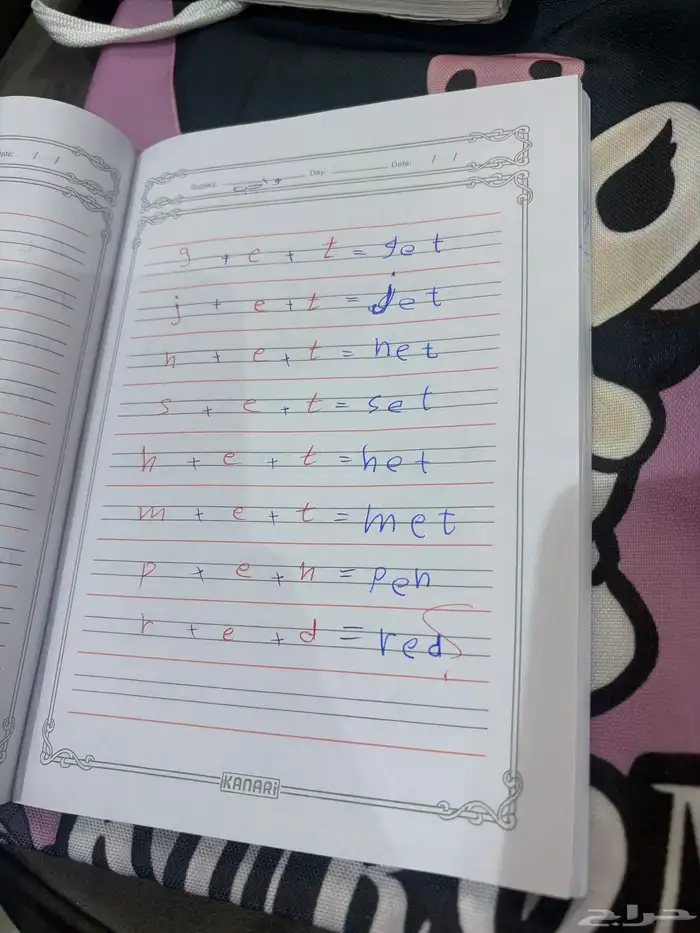 Date: / /
Subject: Day: Date: / /
g + e + t = get
j + e + t = jet
n + e + t = net
s + e + t = set
h + e + t = het
m + e + t = met
p + e + n = pen
r + e + d = red
KANARi
حراج